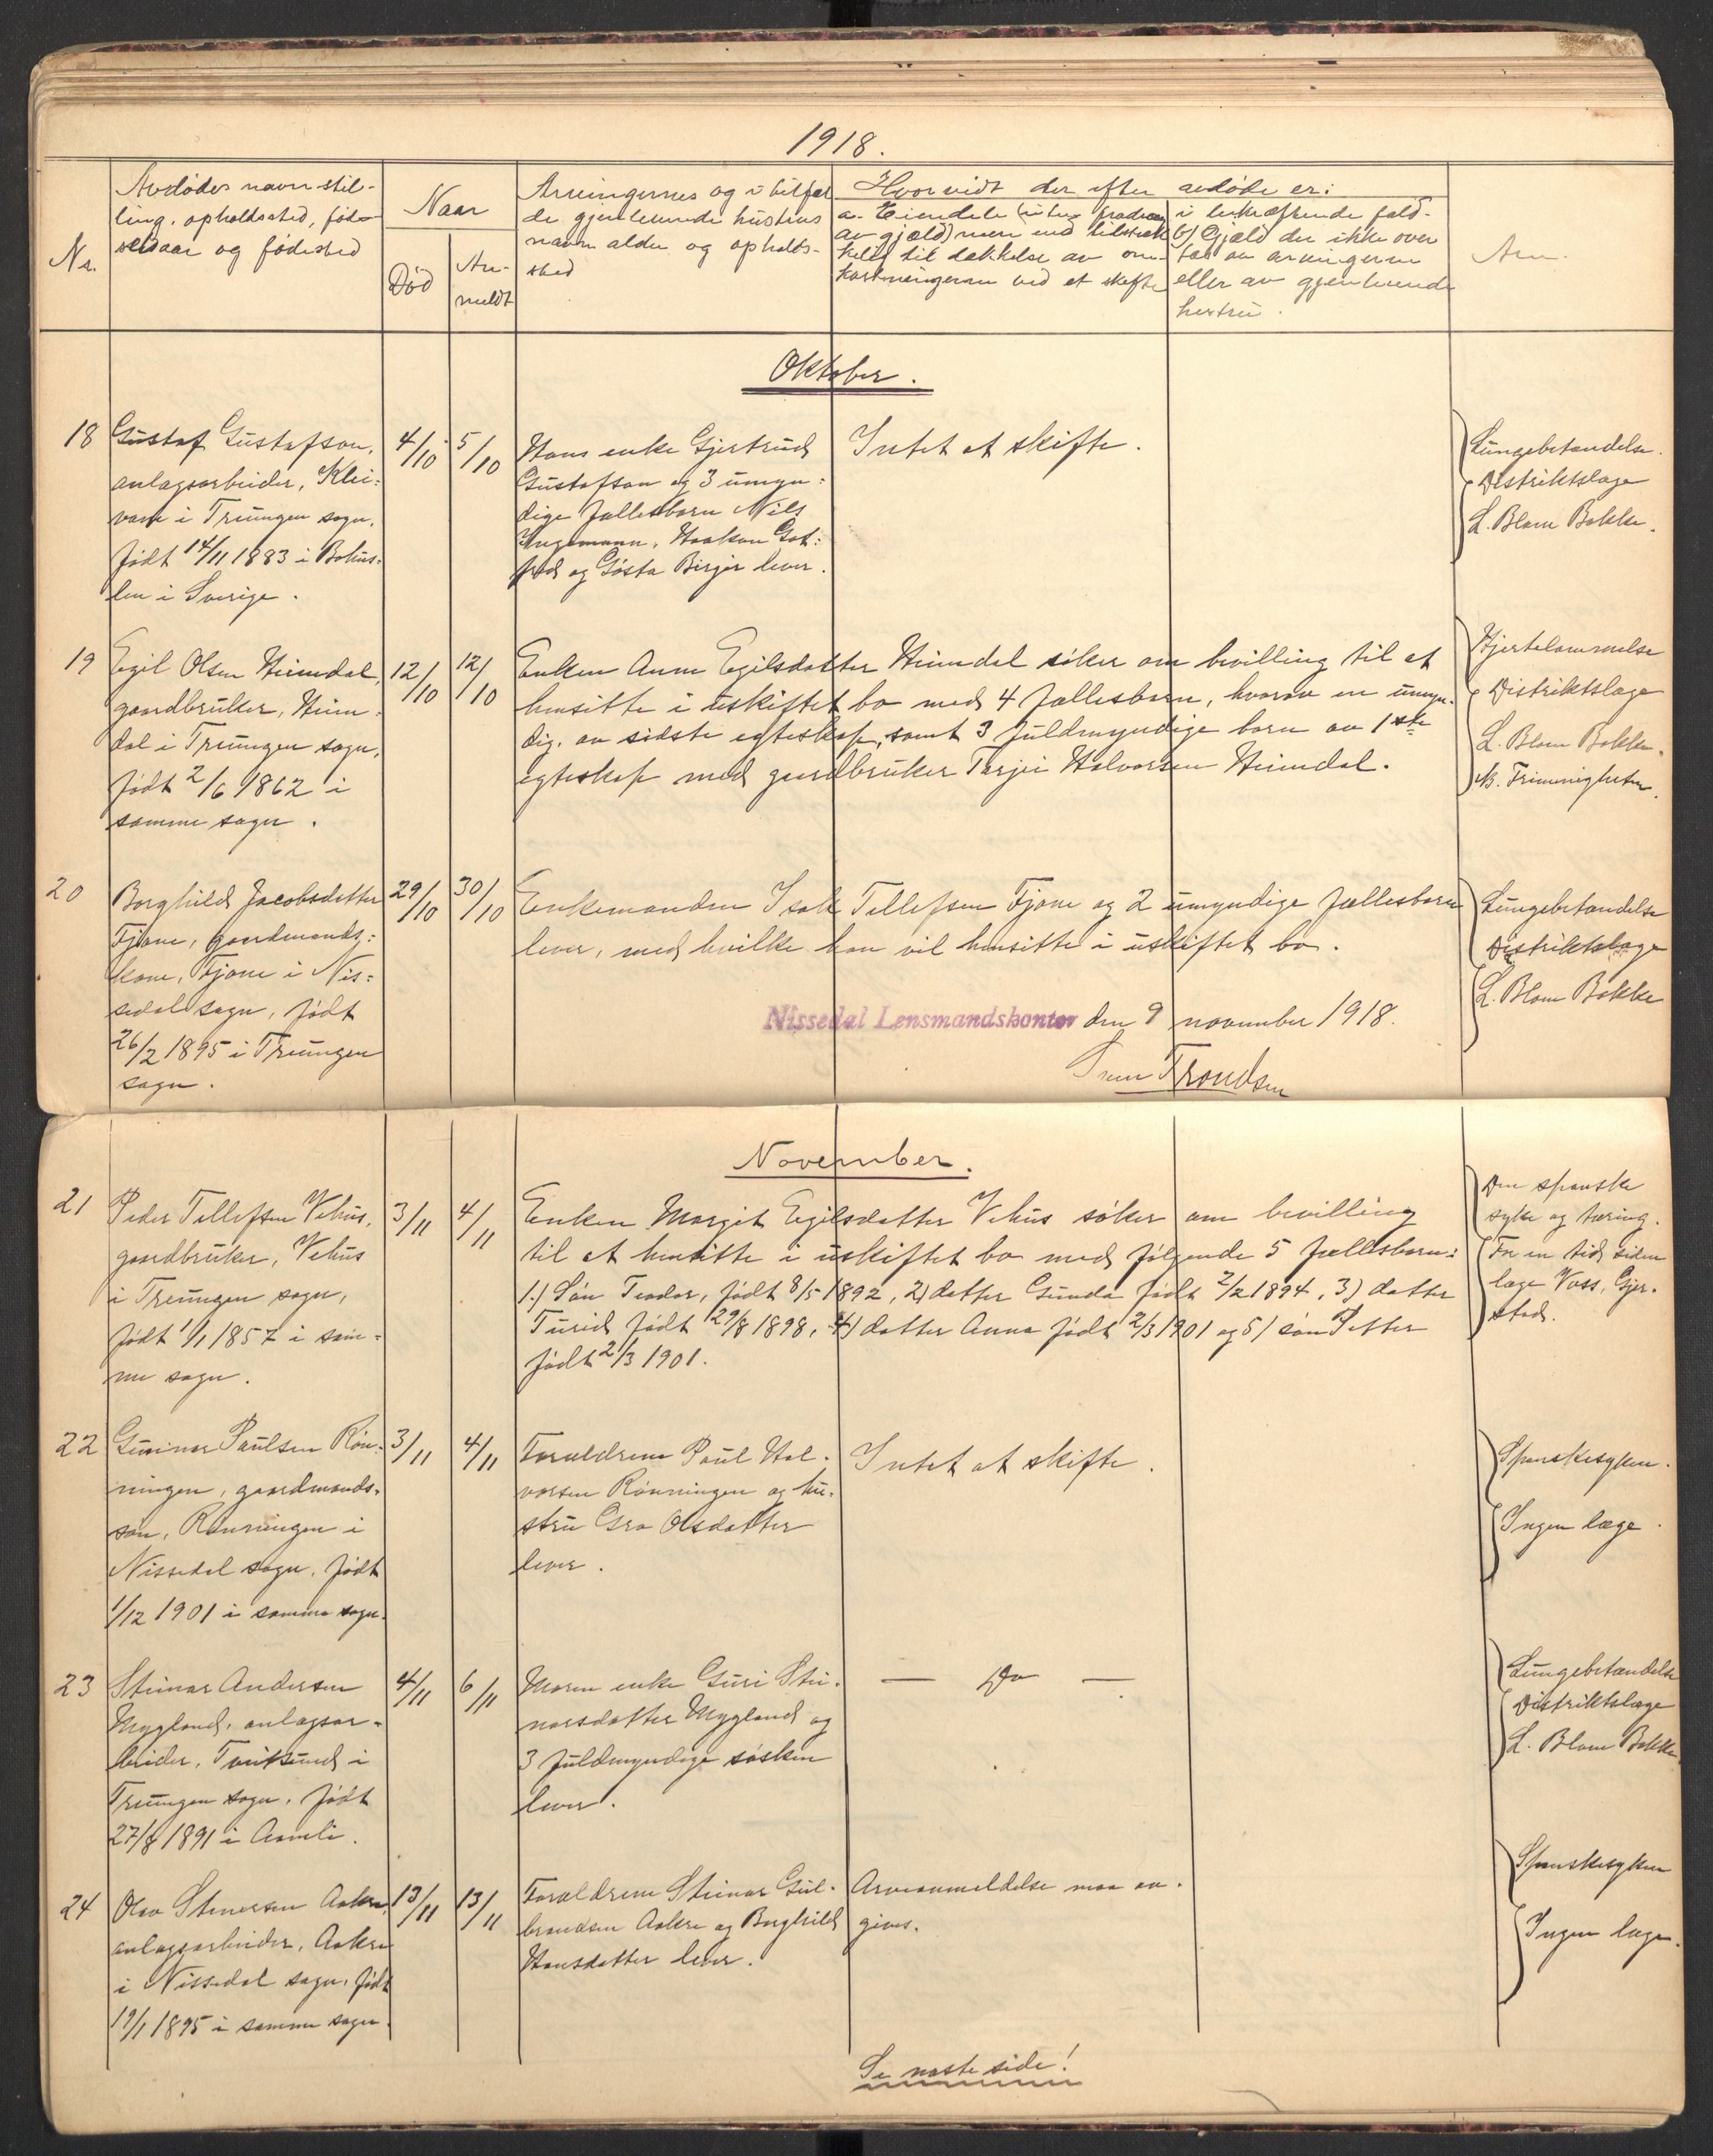 1918.
Nr.
Avdödes navn stil-
ling, opholdssted, föd-
selsaar og födested
Naar
Död
An-
meldt
Arvingernes og i tilfæl
de gjenlevende hustrus
navn alder og opholds-
sted
Hvorvidt der efter avdöde er:
a. Eiendele (uten fradrag
av gjæld) mere end tilstræk
kelig til dækkelse av om-
kostningerne ved et skifte
i bekræftende fald-
b) Gjæld der ikke over
tas av arvingerne
eller av gjenlevende
hustru.
Anm.
Oktober.
18
Gustaf Gustafson,
anlagsarbeider, Klei-
vane i Treungen sogn,
født 14/11 1883 i Bohus-
len i Sverige.
4/10
5/10
Hans enke Gjertrud
Gustafson og 3 umyn-
dige fællesbarn Nils
Ingemann, Haakon Got-
fred og Gösta Birger lever.
Intet at skifte.
Lungebetændelse.
Distriktslæge
L. Blom Bakke.
19
Egil Olsen Heimdal,
gaardbruker, Heim-
dal i Treungen sogn,
født 2/6 1862 i
samme sogn.
12/10
12/10
Enken Anne Egilsdatter Heimdal söker om bevilling til at
hensitte i uskiftet bo med 4 fællesbarn, hvorav en umyn-
dig, av sidste egteskap, samt 3 fuldmyndige barn av 1ste
egteskap med gaardbruker Tarjei Halvorsen Heimdal.
Hjertelammelse
Distriktslæge
L. Blom Bakke.
20
Borghild Jacobsdatter
Fjone, gaardmands-
kone, Fjone i Nis-
sedal sogn, født
26/2 1895 i Treungen
sogn.
29/10
30/10
Enkemanden Isak Tellefsen Fjone og 2 umyndige fællesbarn
lever, med hvilke han vil hensitte i uskiftet bo.
Lungebetændelse
Distriktslæge
L. Blom Bakke
Nissedal Lensmandskontor den 9 november 1918.
Trondsen
November.
21
Peder Tellefsen Vehus,
gaardbruker, Vehus
i Treungen sogn,
født 1/1 1857 i sam-
me sogn.
3/11
4/11
Enken Margit Egilsdatter Vehus söker om bevilling
til at hensitte i uskiftet bo med følgende 5 fællesbarn:
1.) Sön Teodor, født 8/5 1892, 2) datter Gunda født 2/2 1894, 3.) datter
Turid født 29/8 1898, 4) datter Anna født 2/3 1901 og 5) sön Petter
født 2/3 1901.
Den spanske
syke og tæring.
For en tid siden
læge Voss, Gjer-
stad.
22
Gunnar Paulsen Rön-
ningen, gaardmands-
sön, Rönningen i
Nissedal sogn, født
1/12 1901 i samme sogn.
3/11
4/11
Forældrene Paul Hal-
vorsen Rönningen og hu-
stru Gro Olsdatter
lever.
Intet at skifte.
Spanskesyken.
Ingen læge.
23
Steinar Andersen
Mygland, anlagsar-
beider, Tveitsund i
Treungen sogn, født
27/8 1891 i Aamli.
4/11
6/11
Moren enke Guri Stei-
narsdatter Mygland og
3 fuldmyndige søsken
lever.
— Do —
Lungebetændelse
Distriktslæge
L. Blom Bakke
24
Olav Stenersen Aakre,
anlagsarbeider, Aakre
i Nissedal sogn, født
19/1 1895 i samme sogn.
13/11
13/11
Forældrene Steinar Gul-
brandsen Aakre og Borghild
Hansdatter lever.
Arveanmeldelse maa av-
gives.
Spanskesyken
Ingen læge.
Se næste side!